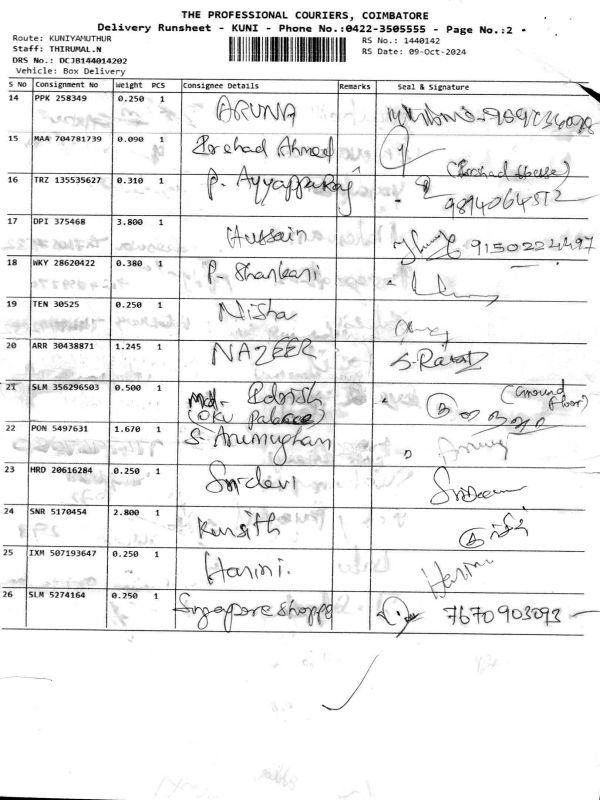 THE PROFESSIONAL COURIERS, COIMBATORE
Delivery Runsheet - KUNI - Phone No.:0422-3505555 - Page No.:2
Route: KUNIYAMUTHUR
RS No.: 1440142
Staff: THIRUMAL.N
RS Date: 09-Oct-2024
DRS No.: DCJB144014202
Vehicle: Box Delivery
S No Consignment No Weight PCS Consignee Details Remarks Seal & Signature
14 PPK 258349 0.250 1 ARUNA
15 MAA 704781739 0.090 1 Ershad Ahmed
16 TRZ 135535627 0.310 1 P. Ayyappa Raj 9894064512
17 DPI 375468 3.800 1 Hussain 9150224497
18 WKY 28620422 0.380 1 P. Shankani
19 TEN 30525 0.250 1 Nisha
20 ARR 30438871 1.245 1 NAZEER
21 SLM 356296503 0.500 1 Md. Edrish (Ground
(OKV Palace) floor)
22 PON 5497631 1.670 1 S. Arumugham
23 HRD 20616284 0.250 1 Sridevi
24 SNR 5170454 2.800 1 Kursith
25 IXM 507193647 0.250 1 Harini. Harini
26 SLM 5274164 0.250 1 Singapore Shoppe 7670903093